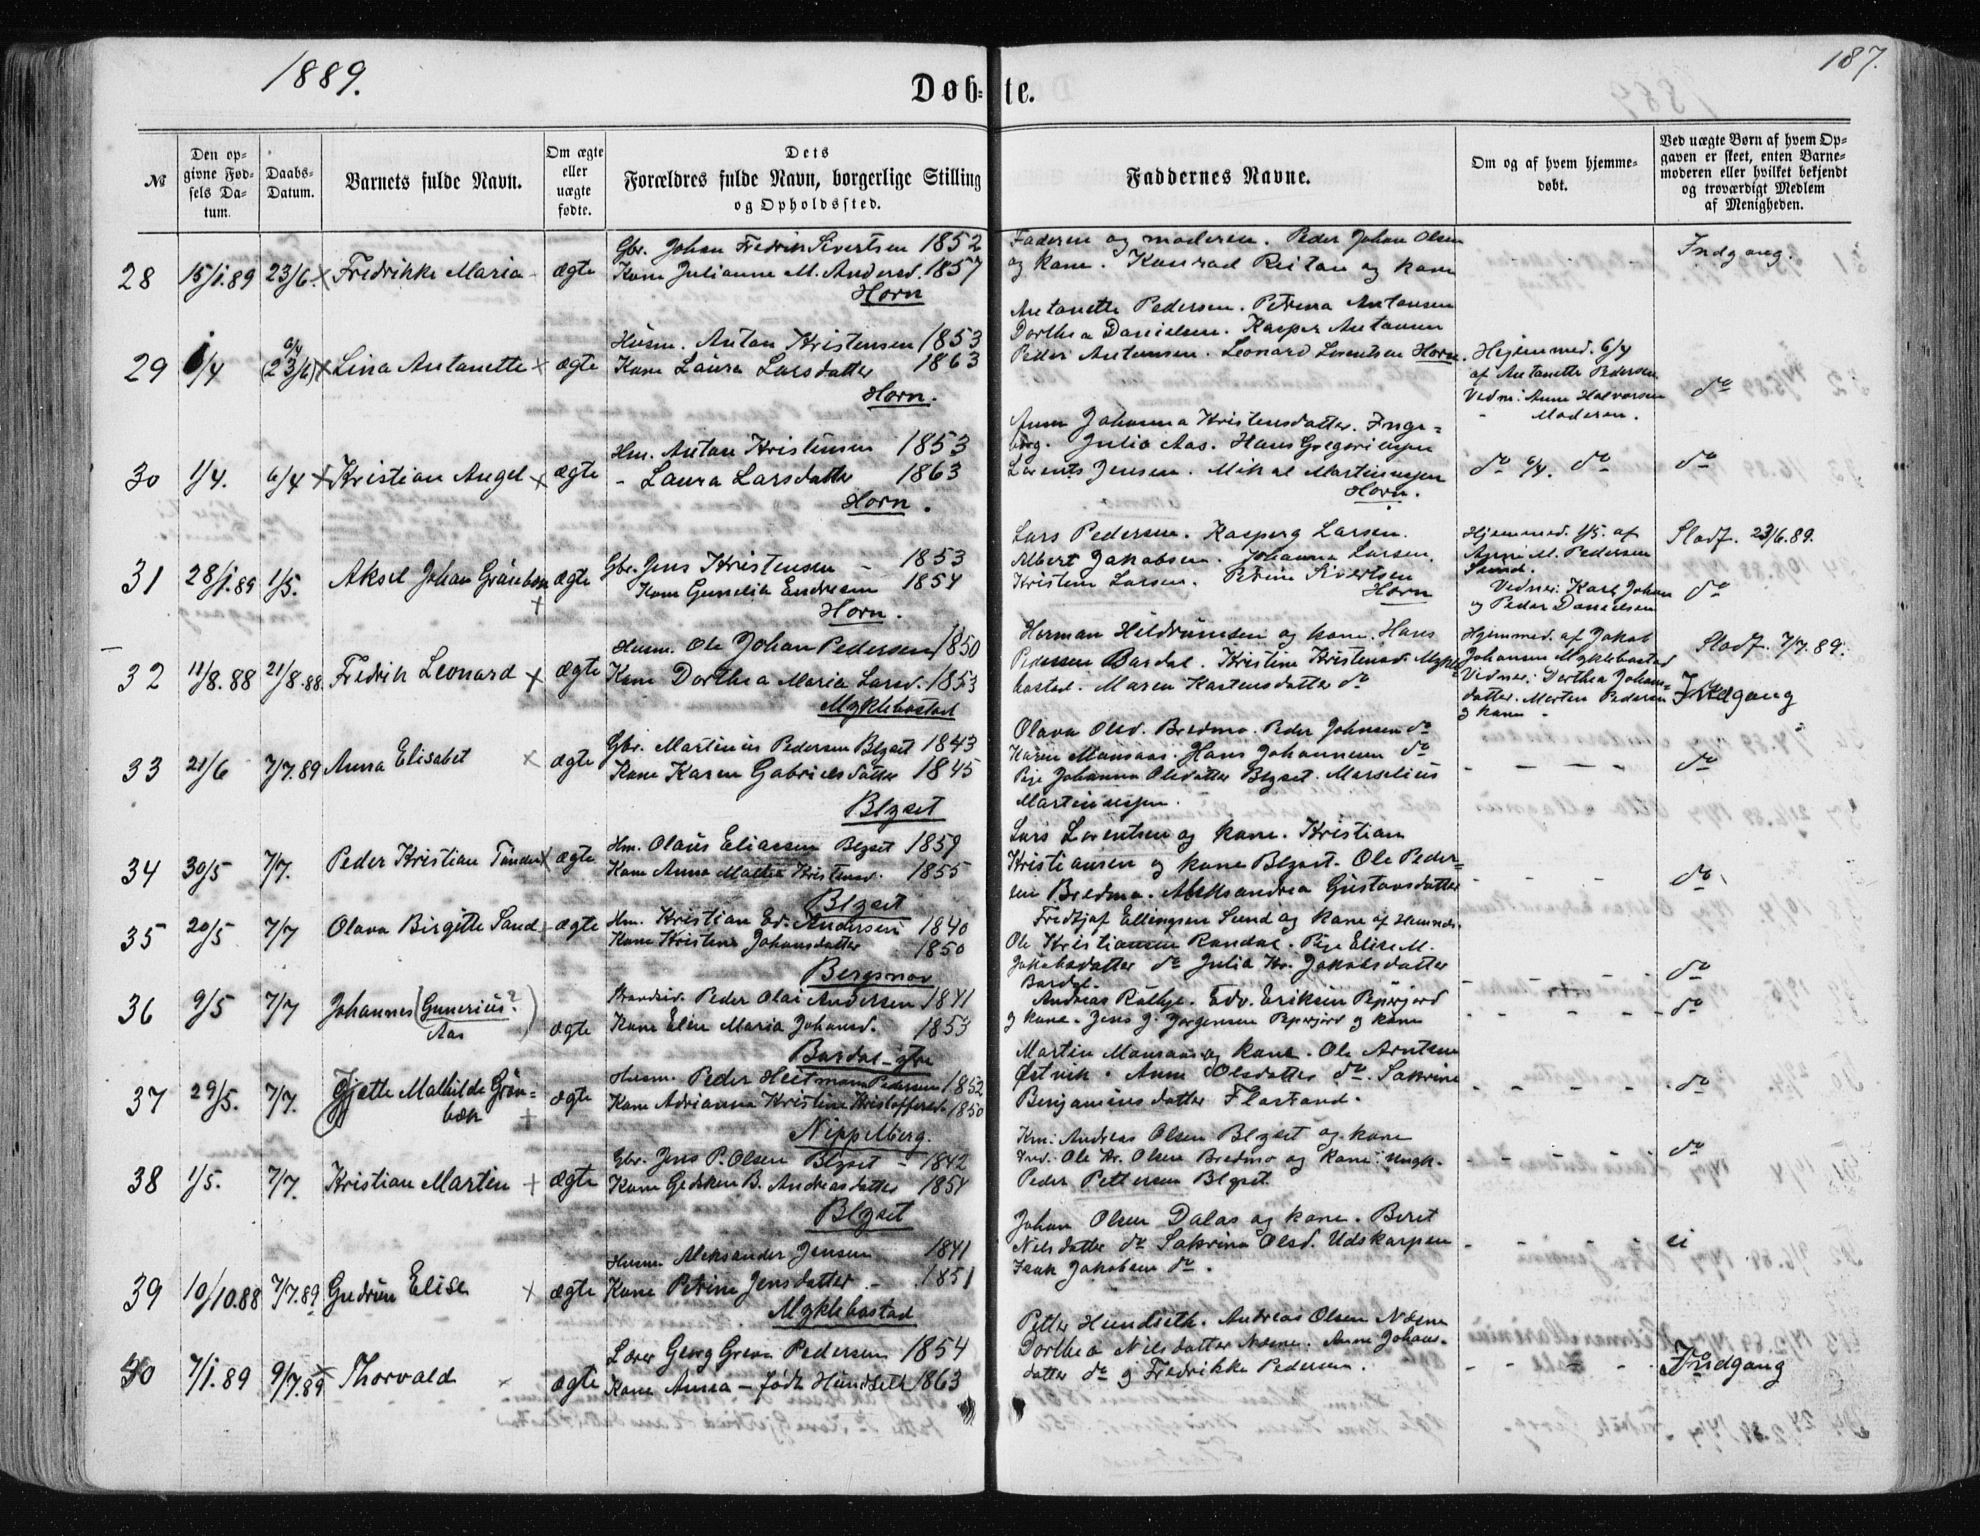 1889.
187.
Døb-te.
№
Den op-
givne Fød-
sels Da-
tum.
Daabs-
Datum.
Barnets fulde Navn.
Om ægte
eller
uægte
fødte.
Dets
Forældres fulde Navn, borgerlige Stilling
og Opholdssted.
Faddernes Navne.
Om og af hvem hjemme-
døbt.
Ved uægte Børn af hvem Op-
gaven er skeet, enten Barne-
moderen eller hvilket bekjendt
og troværdigt Medlem
af Menigheden.
28 15/1.89 23/6. x Fredrikke Maria ægte
Gbr. Johan Fredrik Sivertsen 1852
Kone Julianne M. Andersd. 1857
Horn
Faderen og moderen. Peder Johan Olsen
og kone. Konrad Ristan og kone
Indgang.
29 1/4 6/4 (23/6) x Lina Antonette x ægte
Husm. Anton Kristensen 1853
Kone Laura Larsdatter 1863
Horn.
Antonette Pedersen. Petrina Antonsen
Dorthea Danielsen. Kasper Antonsen
Peder Antonsen. Leonard Lorentsen Horn.
Hejemmed. 6/4
af Antonette Pedersen
Vedn: Anne Halvorsen
- Moderen.
do
30 1/4. 6/4 x Kristian Angel x ægte
Hm. Anton Kristensen 1853
- Laura Larsdatter 1863
Horn.
Johanna Kristensdatter. Inge-
borg. Julia Aas. Hans Gregoriusen
Lorents Jensen. Mikal Martinusen
Horn.
do 6/4. do
do
31 28/1.89 1/5. Aksel Johan Grønebon x ægte
Gbr. Jens Kristensen - 1853
Kone Gunelia Endresen 1854
Horn.
Lars Pedersen. Kasperg Larsen.
Albert Jakobsen. Johanna Larsen.
Kristen Larsen. Petrine Sivertsen
Horn
Hjemmed. 1/5. af
Anne M. Pedersen
Sund.
Vedner: Karl Johan
og Peder Danielsen
Stadf. 23/6.89.
do
32 11/8.88 21/8.88. Fredrik Leonard x ægte
Husm. Ole Johan Pedersen 1850
Kone Dorthea Maria Larsd. 1853
Myklebostad
Herman Hildrumsen og kone. Hans
Pedersen Bardal. Kristine Kristensd. Mykle-
bostad. Maren Karstensdatter do
Hjemmed. af Jakob
Johansen Myklebostad
Vidner: Dorthea Johans-
datter. Morten Pedersen
og kone -
Stadf. 7/7.89.
Indgang
33 21/6 7/7.89 Anna Elisabet x ægte
Gbr. Martinus Pedersen Blyset 1843
Kone Karen Gabrielsdatter 1845
Blyset
Olava Olsd. Bredmo. Peder Johnsen do
Karen Monsaas. Hans Johannesen do
Pige Johanna Olsdatter Blyset. Marselius
Martinusen.
do
34 30/5 7/7. Peder Kristian Tønder x ægte
Hm. Olaus Eliassen Blyset 1859
Kone Anna Mathea Kristensd. 1855
Blyset
Lars Lorentsen og kone. Kristian
Kristiansen og kone Blyset. Ole Peder-
sen Bredmo. Aleksandrea Gustavsdatter
do
35 20/5 7/7 Olava Birgitte Sand ægte
Hm. Kristian Ed. Andersen 1840
Kone Kristine Johansdatter 1850
Bergsmov
Fredtjof Ellingsen Sund og kone af Hemnes.
Ole Kristiansen Randal. Pige Elise M.
Jakobsdatter do Julia Kr. Jakobsdatter
Bardal.
do
36 9/5 7/7 Johannes (Gunerius?) Aas ægte
Strandsid. Peder Olai Andersen 1841
Kone Elen Maria Johansd. 1853
Bardal-ytre
Andreas Røthje. Edv. Eriksen
og kone. Jens J. Jørgensen og kone
do
37 29/5. 7/7. Gjætte Mathilde Grøn-
bæk + ægte
Husm. Peder Heitmann Pedersen 1852
Kone Adrianna Kristine Kristoffersd. 1850
Nippelberg.
Martin Monsaas og kone. Ole Arntsen
Østvik. Anne Olsdatter do. Sakrine
Benjaminsdatter Flostrand.
do
38 1/5. 7/7. Kristian Martin + ægte
Gbr. Jens P. Olsen Blyset - 1842
Kone Gedsken B. Andreasdatter 1854
Blyset
Km: Andreas Olsen Blyset og kone
Ind. Ole Kr. Olsen Bredmo og kone. Ungk.
Peder Pettersen Blyset
do
39 10/10.88 7/7.89 Gudrun Elise x ægte
Husm. Aleksander Jensen 1841
Kone Petrine Jensdatter - 1851
Myklebostad
Johan Olsen Dalas og kone. Beret
Nilsdatter do Sakrina Olsd. Udskarpen
Isak Jakobsen do.
ei
40 7/1.89 9/7.89 x Thorvald x ægte
Lærer Georg Greva Pedersen 1854
Kone Anna - født Hundseth 1863
Petter Hundseth. Andreas Olsen Næsne
Dorthea Nilsdatter Næsne. Anne Johans-
datter do og Fredrikke Pedersen.
Indgang